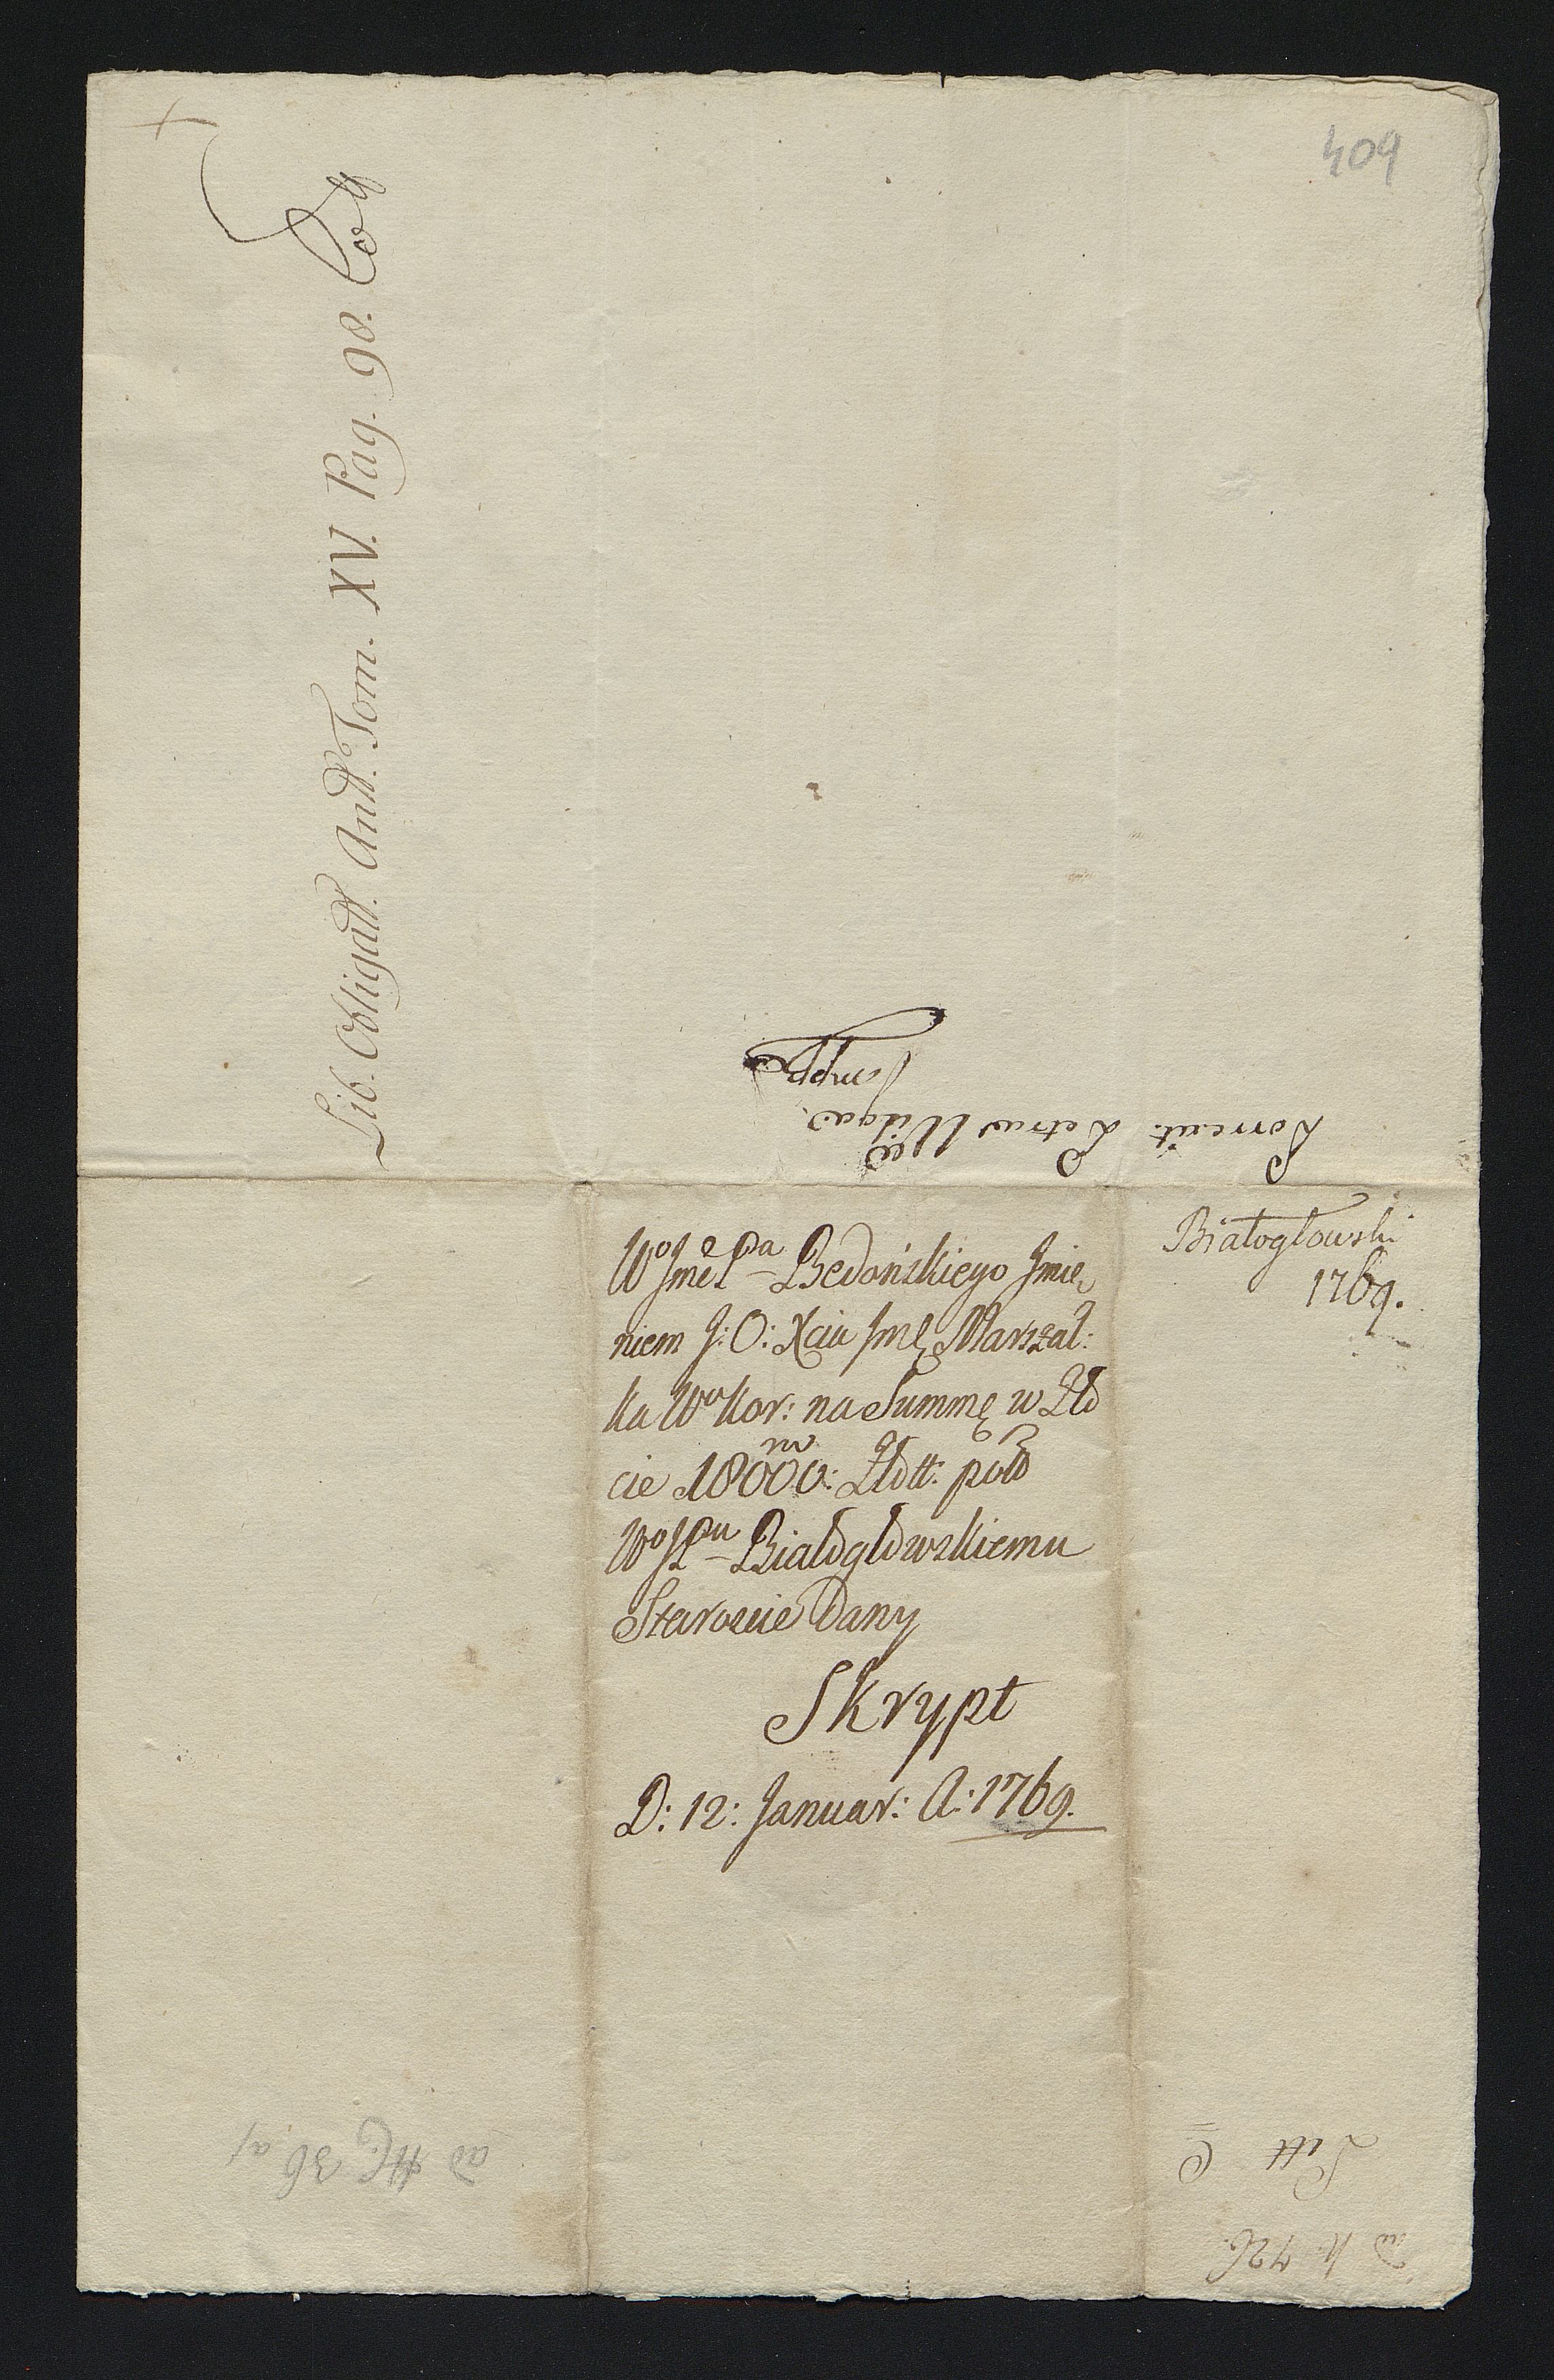 409
Lib. Obligatt. Antt. Tom. XV. Pag. 98.
Correxit. Petrus Wilga
Białogłowski
1769.
Wo Jme Pa Bedońskiego Jmie
niem J: O: Xcia Jmę Marszał:
ka Wo Kor: na Summę w Zło
cie 18000: Złott: pols
Wo JPu Białogłowskiemu
Staroscie Dany
Skrypt
D: 12: Januar: A: 1769.
Litt C
ad N. 726.